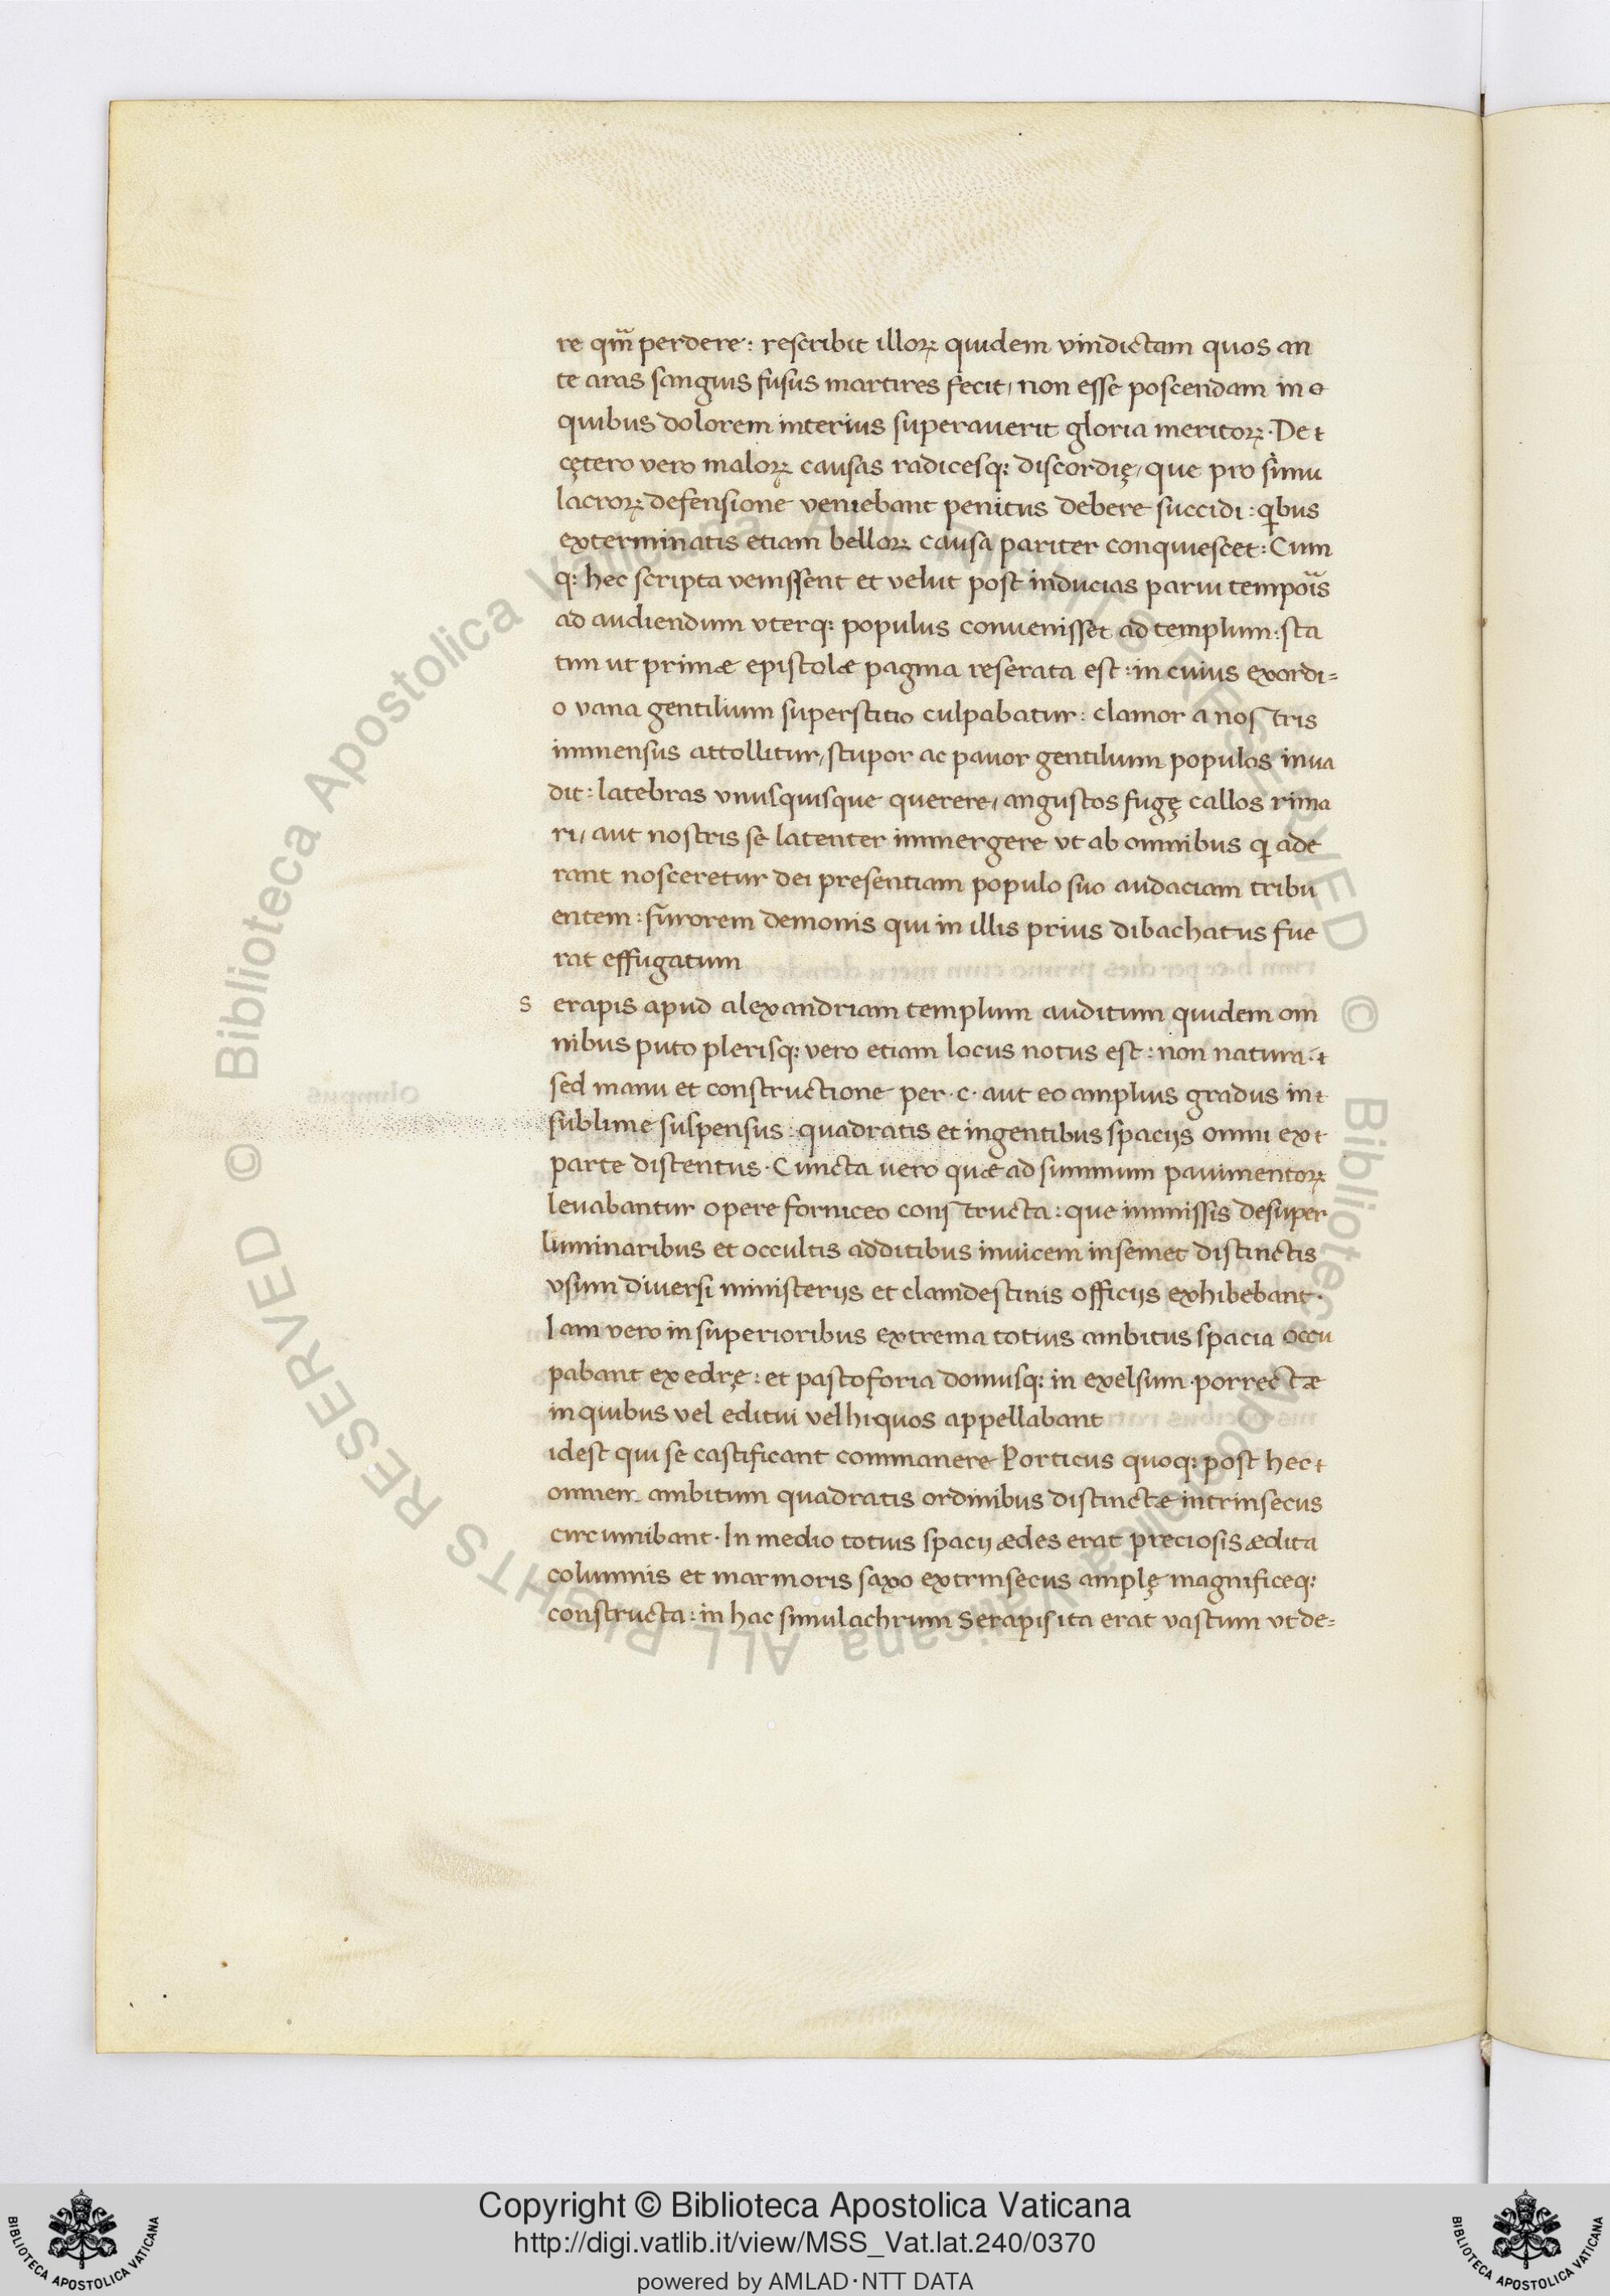 re qm̃ perdere: rescribit illoꝝ quidem vindictam quos an
te aras sanguis fusus martires fecit, non esse poscendam in e
quibus dolorem interius superauerit gloria meritoꝝ. De t
cętero vero maloꝝ causas radicesqꝫ discordię, que pro simu
lacroꝝ defensione veniebant penitus debere succidi: qͥbus
exterminatis etiam belloꝝ causa pariter conquiescet: Cum
qꝫ hec scripta venissent et velut post inducias parui tempoĩs
ad audiendum vterqꝫ populus conuenisset ad templum: sta
tim ut primæ epistolæ pagina reserata est: in cuius exordi=
o vana gentilium superstitio culpabatur: clamor a nostris
immensus attollitur, stupor ac pauor gentilium populos inua
dit: latebras vnusquisque querere, angustos fugę calles rima
ri, aut nostris se latenter immergere vt ab omnibus qͥ ade
rant nosceretur dei presentiam populo suo audaciam tribu
entem: furorem demonis qui in illis prius dibachatus fue
rat effugatum
S erapis apud alexandriam templum auditum quidem om
nibus puto plerisqꝫ vero etiam locus notus est: non natura. t
sed manu et constructione per .c. aut eo amplius gradus in t
sublime suspensus: quadratis et ingentibus spacijs omni ex t
parte distentus. Cuncta vero quæ ad summum pauimentoꝝ
leuabantur opere forniceo constructa: que immissis desuper
luminaribus et occultis additibus inuicem insemet distinctis
vsum diuersi ministerijs et clamdestinis officijs exhibebant.
Iam vero in superioribus extrema totius ambitus spacia occu
pabant exedrę: et pastoforia domusqꝫ in exelsum porrectæ
in quibus vel editui vel hi quos appellabant
idest qui se castificant commanere Porticus quoqꝫ post hec t
omnem ambitum quadratis ordinibus distinctæ intrinsecus
circumibant. In medio totius spacij ædes erat preciosis ædita
columnis et marmoris saxo extrinsecus amplę magnificeqꝫ
constructa: in hac simulachrum Serapis ita erat vastum vt de=
Copyright © Biblioteca Apostolica Vaticana
http://digi.vatlib.it/view/MSS_Vat.lat.240/0370
powered by AMLAD·NTT DATA
BIBLIOTECA APOSTOLICA VATICANA
BIBLIOTECA APOSTOLICA VATICANA
© Biblioteca Apostolica Vaticana ALL RIGHTS RESERVED © Biblioteca Apostolica Vaticana ALL RIGHTS RESERVED